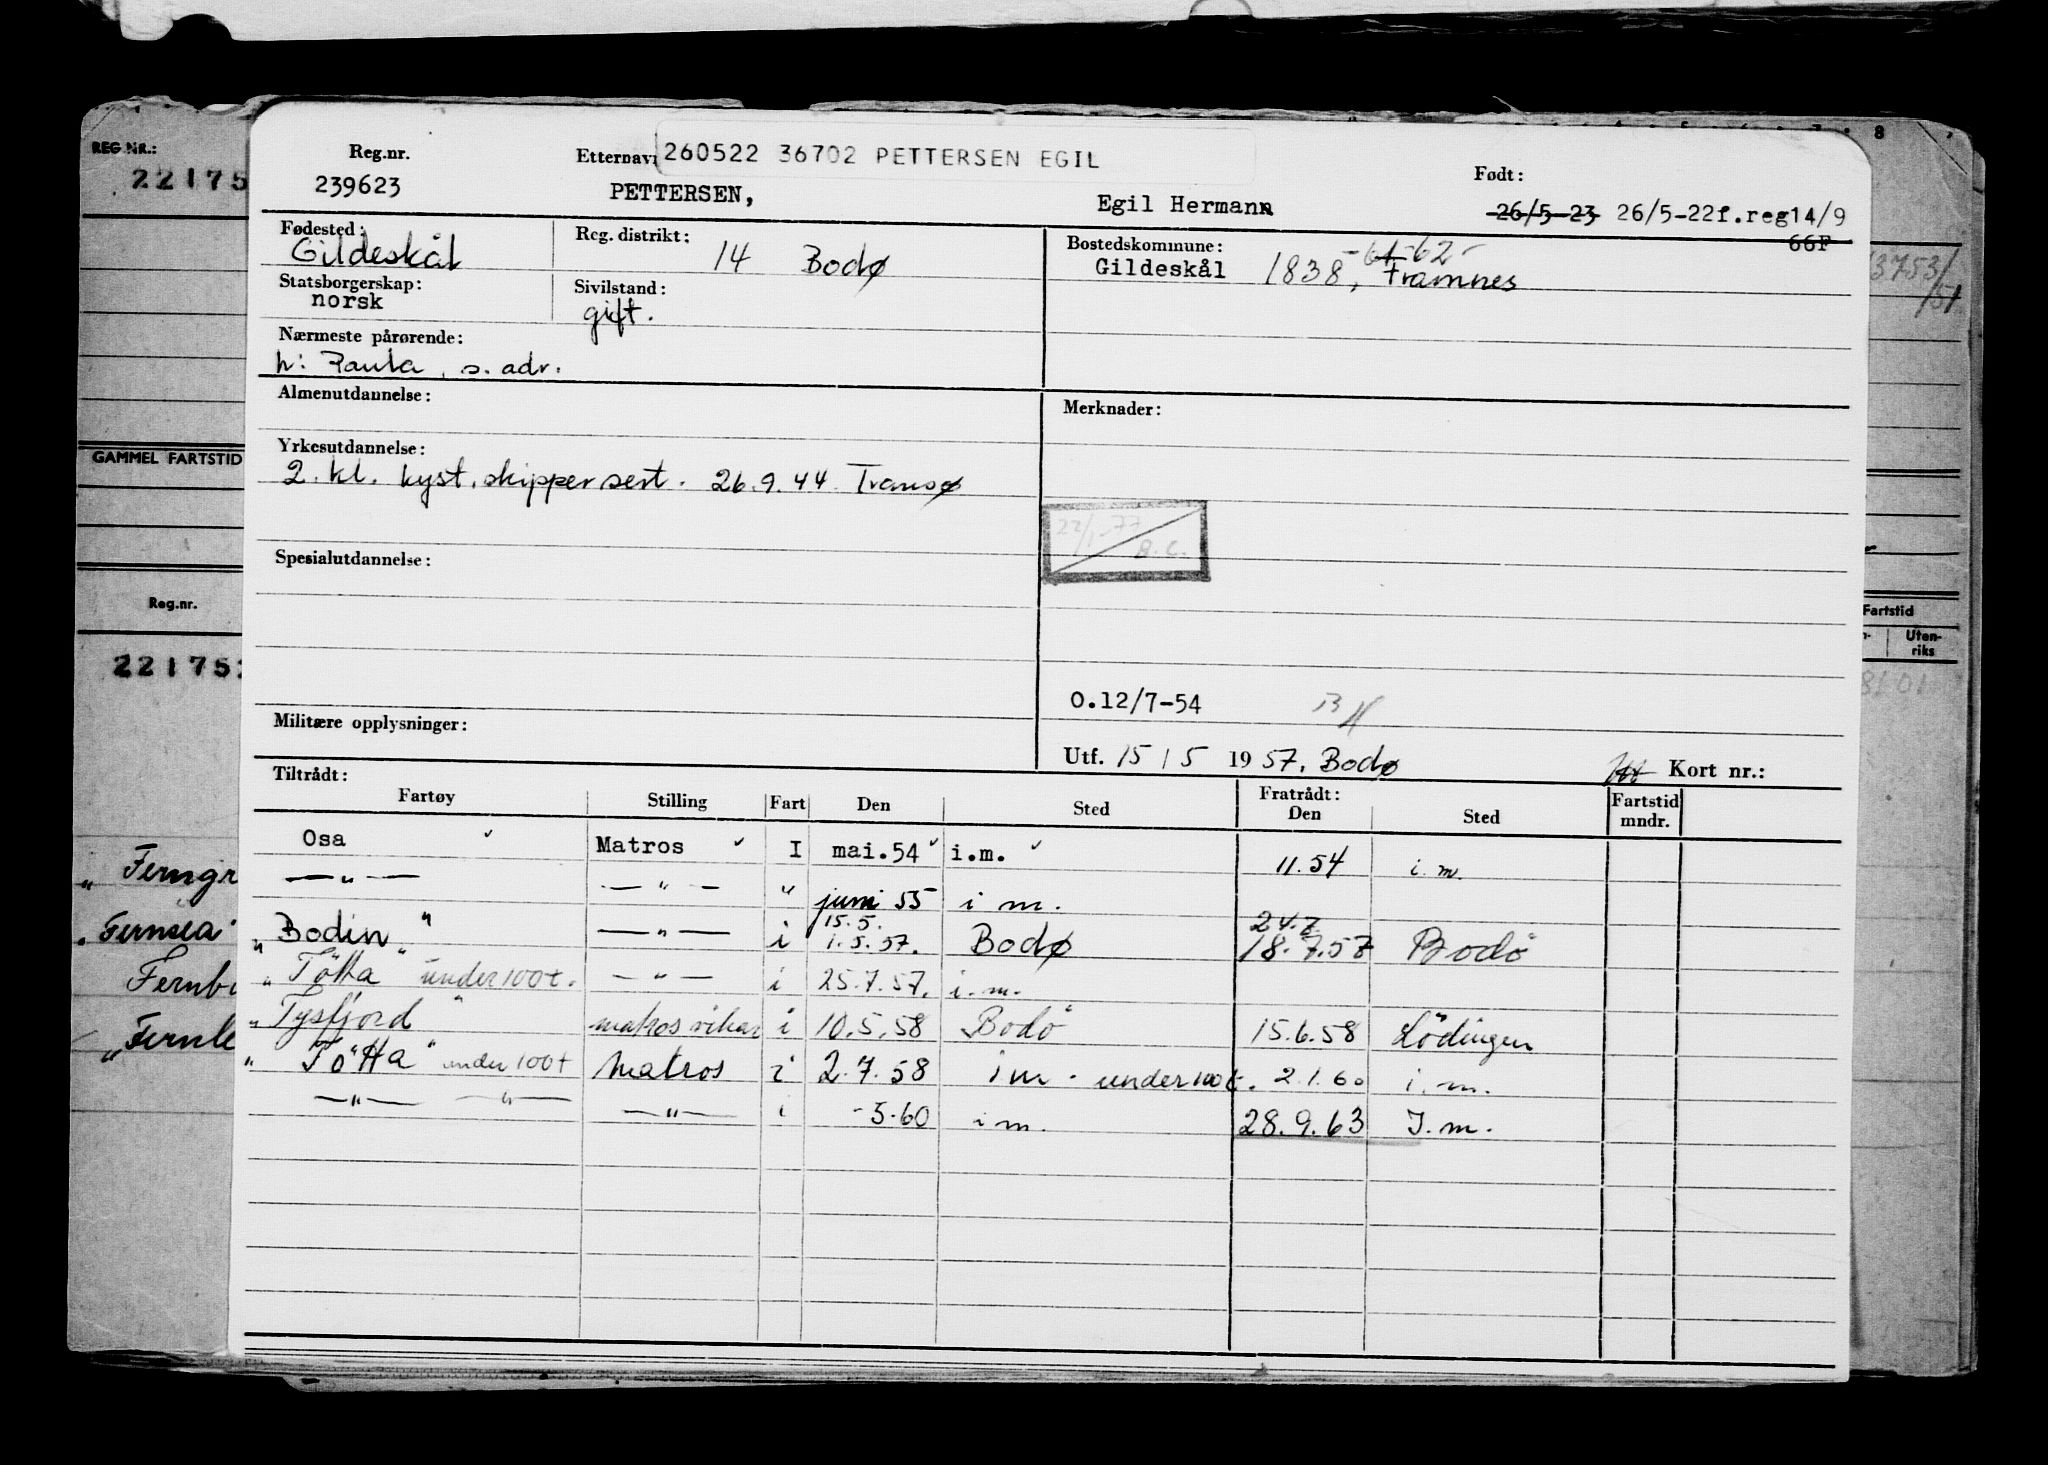 REG.NR.:
22175
GAMMEL FARTSTID
Reg.nr.
221751
Fartstid
Uten-
riks
Reg.nr.
239623
Etternavn
260522 36702 PETTERSEN EGIL
PETTERSEN,
Egil Hermann
Født:
26/5-23 26/5-22f.reg14/9
66F
Fødested:
Gildeskål
Reg. distrikt:
14 Bodø
Bostedskommune:
-61-62-
Gildeskål 1838, Framnes
Statsborgerskap:
norsk
Sivilstand:
gift.
Nærmeste pårørende:
h: Paula, s. adr.
Almenutdannelse:
Merknader:
Yrkesutdannelse:
2. kl. kyst.skippersert. 26.9.44 Tromsø
22/1-77
B.C.
Spesialutdannelse:
O.12/7-54
Militære opplysninger:
Utf. 15/5 1957. Bodø
Kort nr.:
Tiltrådt:
Fartøy Stilling Fart Den Sted Fratrådt: Den Sted Fartstid mndr.
Osa Matros I mai.54 i.m. 11.54 i.m.
—"— —"— " juni 55 i m.
15.5. 24.7.
"Bodin" —"— i 1.5.57. Bodø 18.7.57 Bodö
"Tötta" under 100t. —"— i 25.7.57. i.m.
"Tysfjord" matros vikar i 10.5.58 Bodö 15.6.58 Lödingen
"Tötta" under 100t matros i 2.7.58 im. under 100t. 2.1.60 i.m.
—"— —"— —"— i -5-60 i m. 28.9.63 I.m.
"Ferngr
"Fernsea"
Fernb
"Fernle